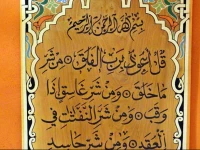 بِسْمِ اللَّهِ الرَّحْمَٰنِ الرَّحِيمِ
قُلْ أَعُوذُ بِرَبِّ الْفَلَقِ ۝ مِنْ شَرِّ
مَا خَلَقَ ۝ وَمِنْ شَرِّ غَاسِقٍ إِذَا
وَقَبَ ۝ وَمِنْ شَرِّ النَّفَّاثَاتِ فِي
الْعُقَدِ ۝ وَمِنْ شَرِّ حَاسِدٍ